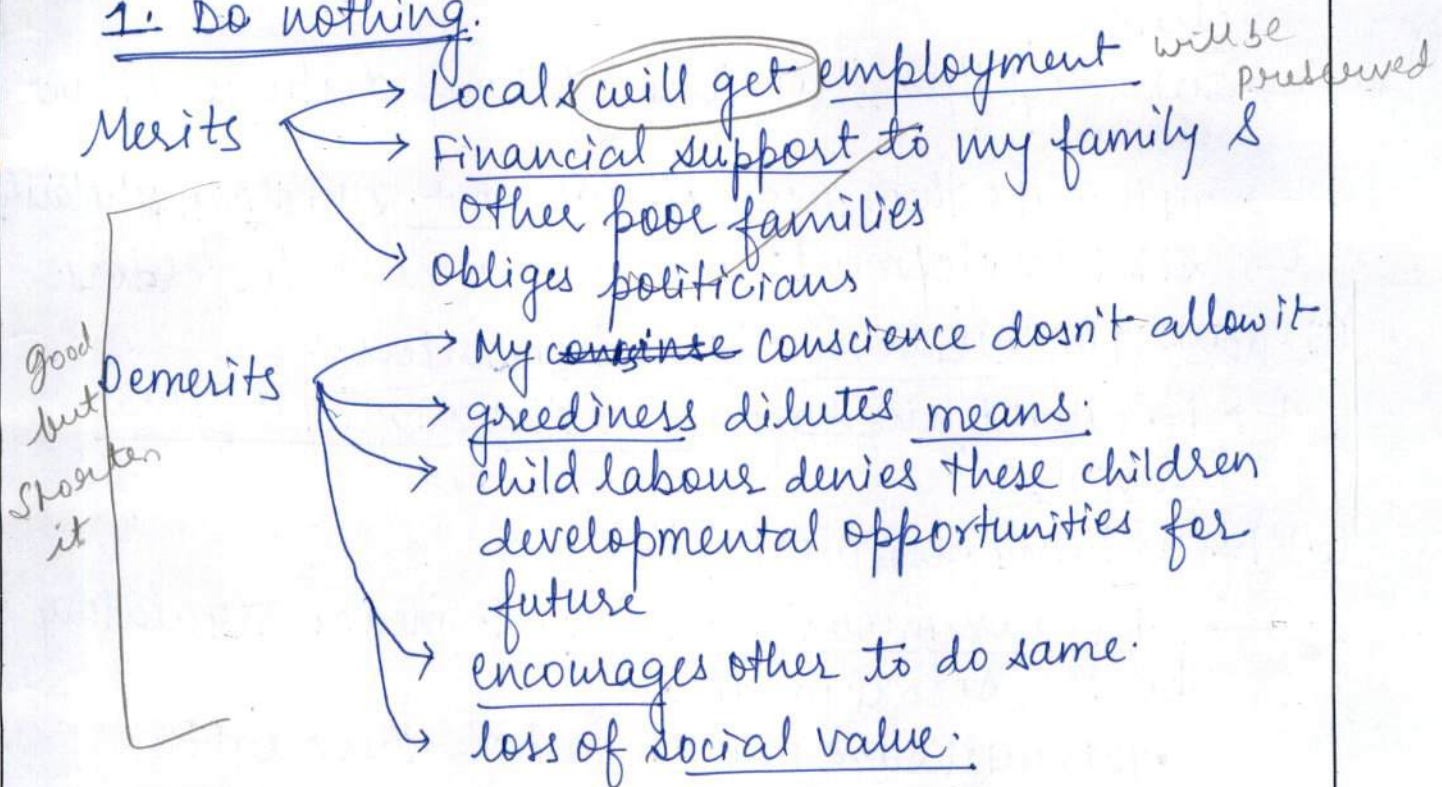 1. Do nothing.
Merits → Locals will get employment will be preserved
→ Financial support to my family &
other poor families
→ obliges politicians
→ My conscience dosn't allow it
good but shorten it
Demerits
→ greediness dilutes means.
→ child labour denies these children
developmental opportunities for
future
→ encourages other to do same.
→ loss of social value.